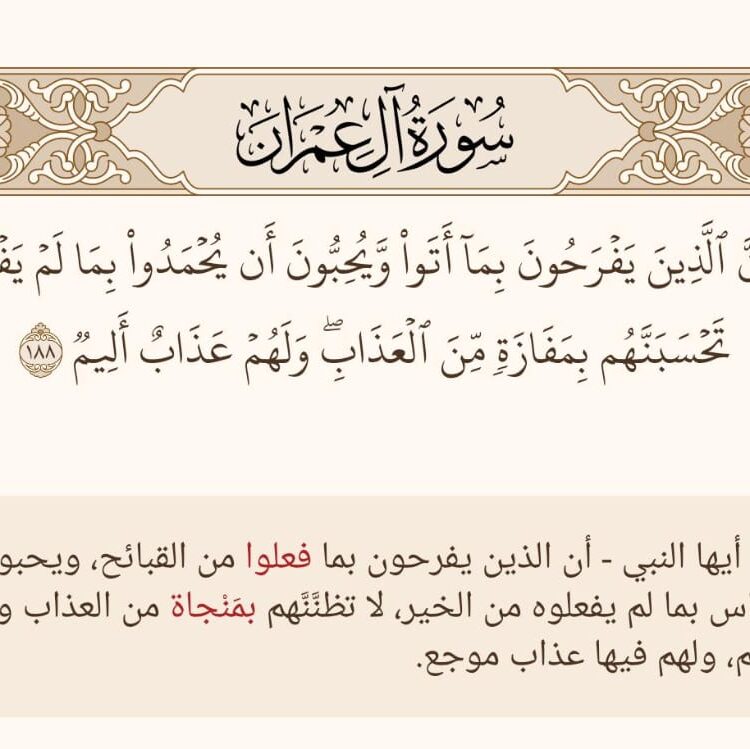 سُورَةُ آلِ عِمْرَانَ
ٱلَّذِينَ يَفْرَحُونَ بِمَآ أَتَوا۟ وَّيُحِبُّونَ أَن يُحْمَدُوا۟ بِمَا لَمْ
تَحْسَبَنَّهُم بِمَفَازَةٍ مِّنَ ٱلْعَذَابِۖ وَلَهُمْ عَذَابٌ أَلِيمٌ ١٨٨
أيها النبي - أن الذين يفرحون بما فعلوا من القبائح،
بما لم يفعلوه من الخير، لا تظنَّنَّهم بمَنْجاة من العذاب
، ولهم فيها عذاب موجع.